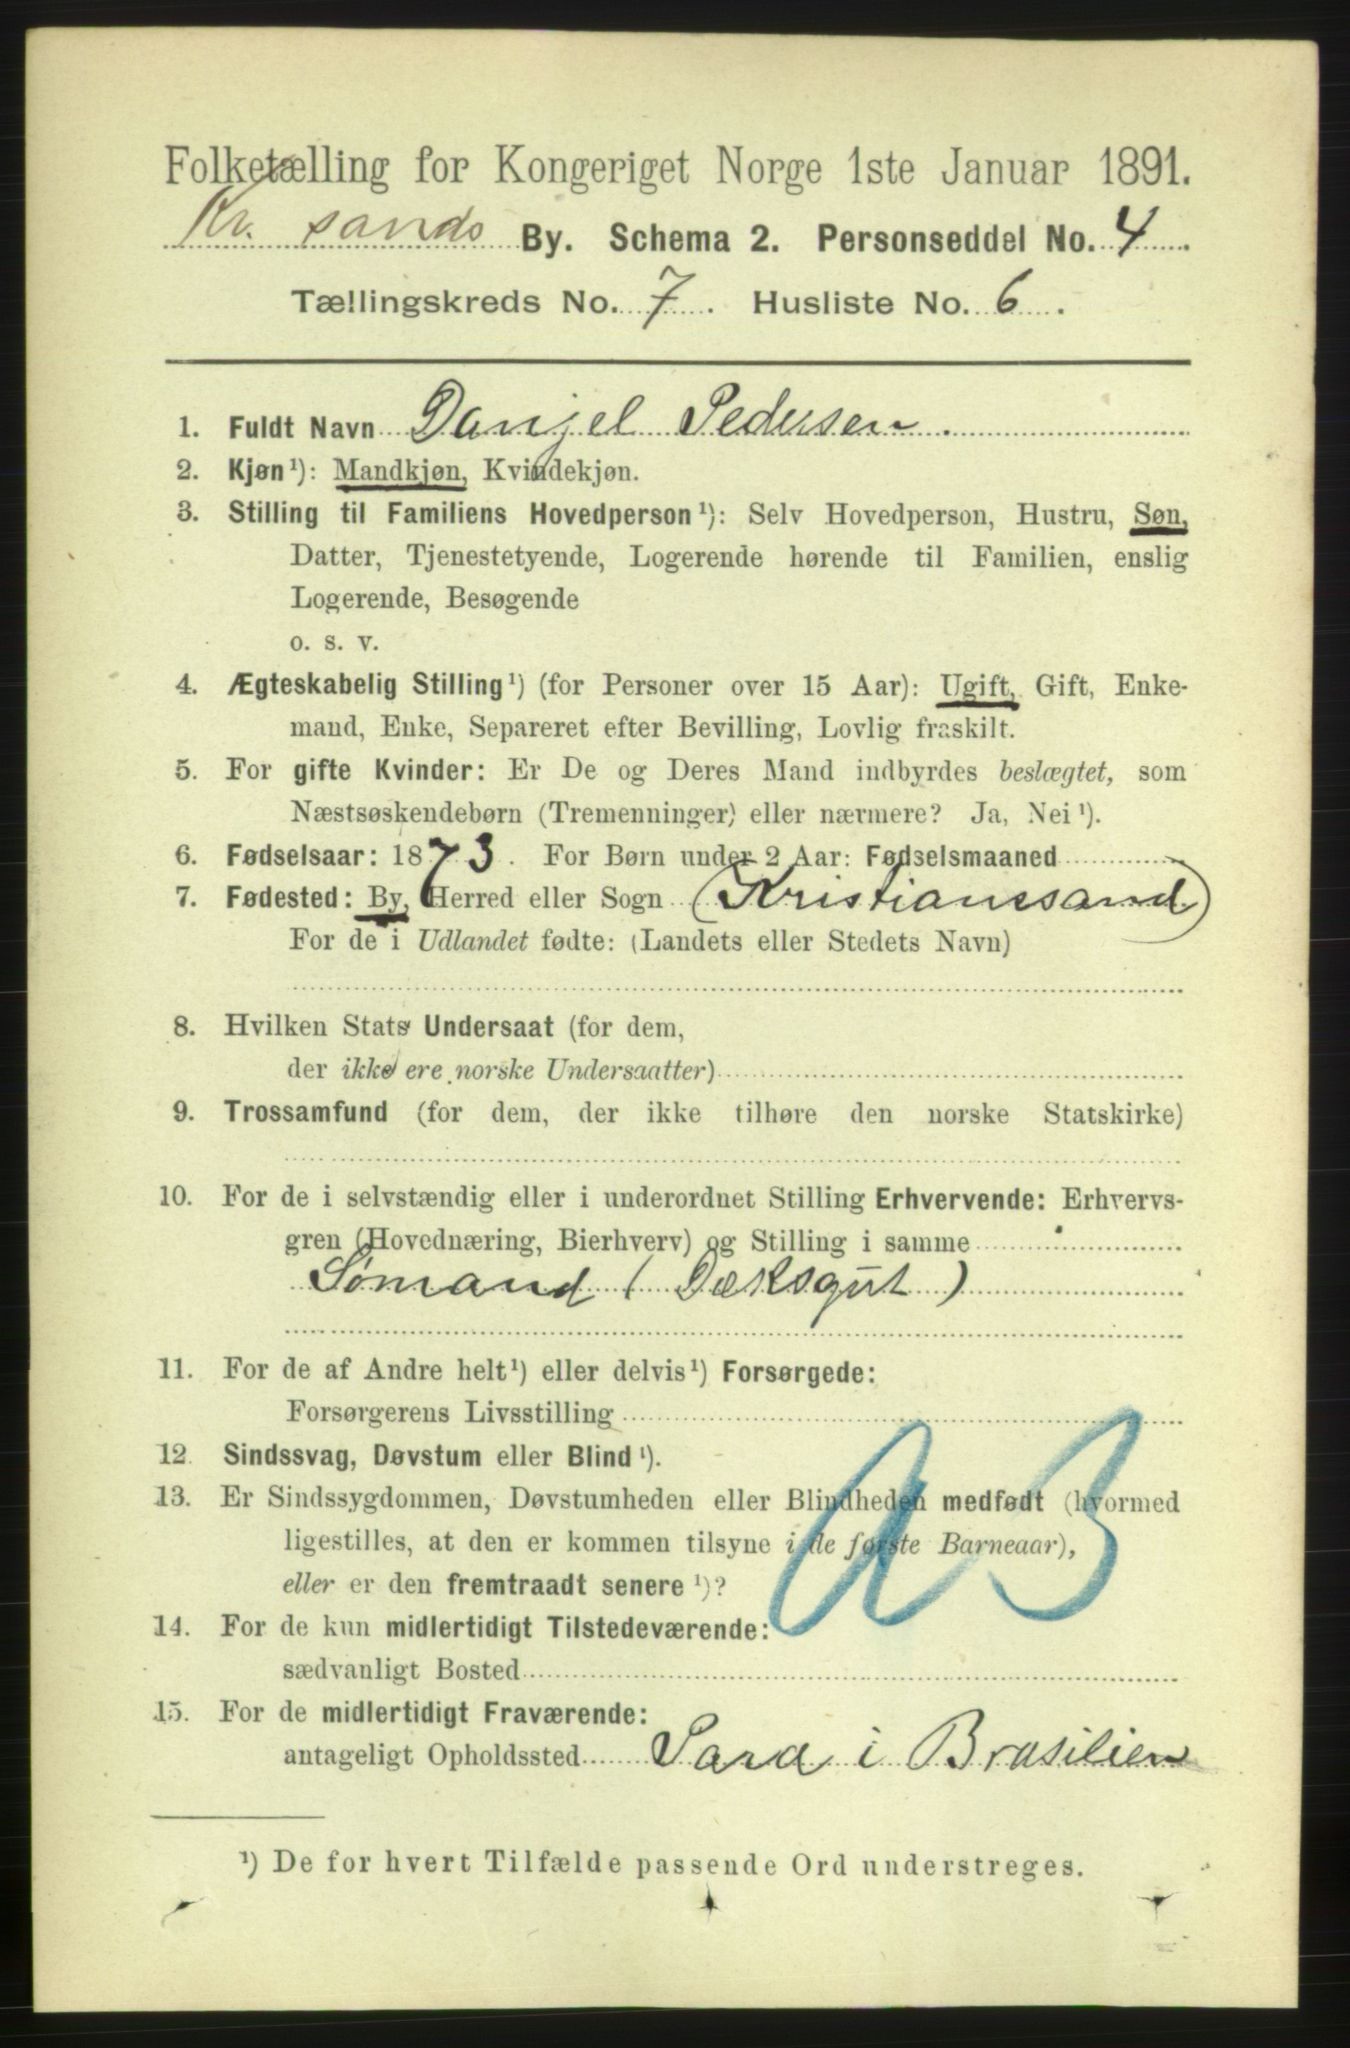 Folketælling for Kongeriget Norge 1ste Januar 1891.
Kr. sands By. Schema 2. Personseddel No. 4.
Tællingskreds No. 7. Husliste No. 6.
1. Fuldt Navn Danjel Pedersen.
2. Kjøn ¹): Mandkjøn, Kvindekjøn.
3. Stilling til Familiens Hovedperson ¹): Selv Hovedperson, Hustru, Søn,
Datter, Tjenestetyende, Logerende hørende til Familien, enslig
Logerende, Besøgende
o. s. v.
4. Ægteskabelig Stilling ¹) (for Personer over 15 Aar): Ugift, Gift, Enke-
mand, Enke, Separeret efter Bevilling, Lovlig fraskilt.
5. For gifte Kvinder: Er De og Deres Mand indbyrdes beslægtet, som
Næstsøskendebørn (Tremenninger) eller nærmere? Ja, Nei ¹).
6. Fødselsaar: 1873. For Børn under 2 Aar: Fødselsmaaned
7. Fødested: By, Herred eller Sogn (Kristianssand)
For de i Udlandet fødte: (Landets eller Stedets Navn)
8. Hvilken Stats Undersaat (for dem,
der ikke ere norske Undersaatter)
9. Trossamfund (for dem, der ikke tilhøre den norske Statskirke)
10. For de i selvstændig eller i underordnet Stilling Erhvervende: Erhvervs-
gren (Hovednæring, Bierhverv) og Stilling i samme
Sømand (Dæksgut)
11. For de af Andre helt ¹) eller delvis ¹) Forsørgede:
Forsørgerens Livsstilling
12. Sindssvag, Døvstum eller Blind ¹).
13. Er Sindssygdommen, Døvstumheden eller Blindheden medfødt (hvormed
ligestilles, at den er kommen tilsyne i de første Barneaar),
eller er den fremtraadt senere ¹)?
14. For de kun midlertidigt Tilstedeværende:
sædvanligt Bosted
15. For de midlertidigt Fraværende:
antageligt Opholdssted Para i Brasilien
¹) De for hvert Tilfælde passende Ord understreges.